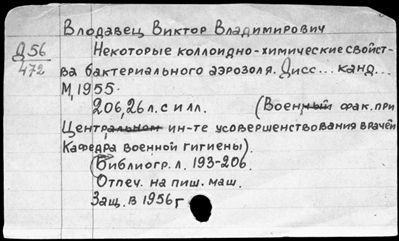 Влодавец Виктор Владимирович
Д56
472
Некоторые коллоидно-химические свойст-
ва бактериального аэрозоля. Дисс... канд...
М, 1955.
206, 26 л. с илл. (Военный фак. при
Центральном ин-те усовершенствования врачей
Кафедра военной гигиены).
(Библиогр. л. 193-206.
Отпеч. на пиш. маш.
Защ. в 1956 г